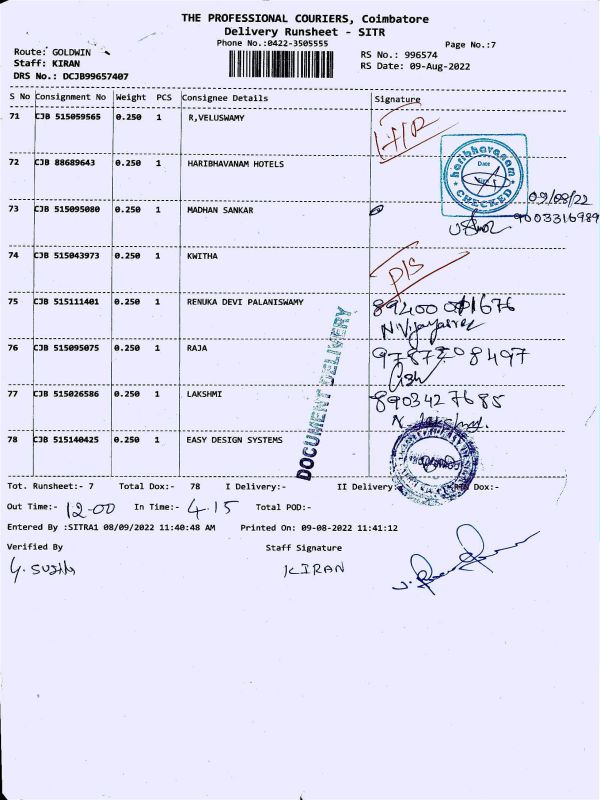 THE PROFESSIONAL COURIERS, Coimbatore
Delivery Runsheet - SITR
Phone No.:0422-3505555
Page No.:7
Route: GOLDWIN
Staff: KIRAN
DRS No.: DCJB99657407
RS No.: 996574
RS Date: 09-Aug-2022
S No Consignment No Weight PCS Consignee Details Signature
71 CJB 515059565 0.250 1 R,VELUSWAMY
72 CJB 88689643 0.250 1 HARIBHAVANAM HOTELS
haribhavanam
Date
CHECKED
09/08/22
73 CJB 515095080 0.250 1 MADHAN SANKAR
9003316989
74 CJB 515043973 0.250 1 KWITHA
P/S
75 CJB 515111401 0.250 1 RENUKA DEVI PALANISWAMY
76 CJB 515095075 0.250 1 RAJA
77 CJB 515026586 0.250 1 LAKSHMI 8903427685
78 CJB 515140425 0.250 1 EASY DESIGN SYSTEMS
DOCUMENT DELIVERY
Tot. Runsheet:- 7 Total Dox:- 78 I Delivery:- II Delivery: Dox:-
Out Time:- 12-00 In Time:- 4.15 Total POD:-
Entered By :SITRA1 08/09/2022 11:40:48 AM Printed On: 09-08-2022 11:41:12
Verified By Staff Signature
KIRAN